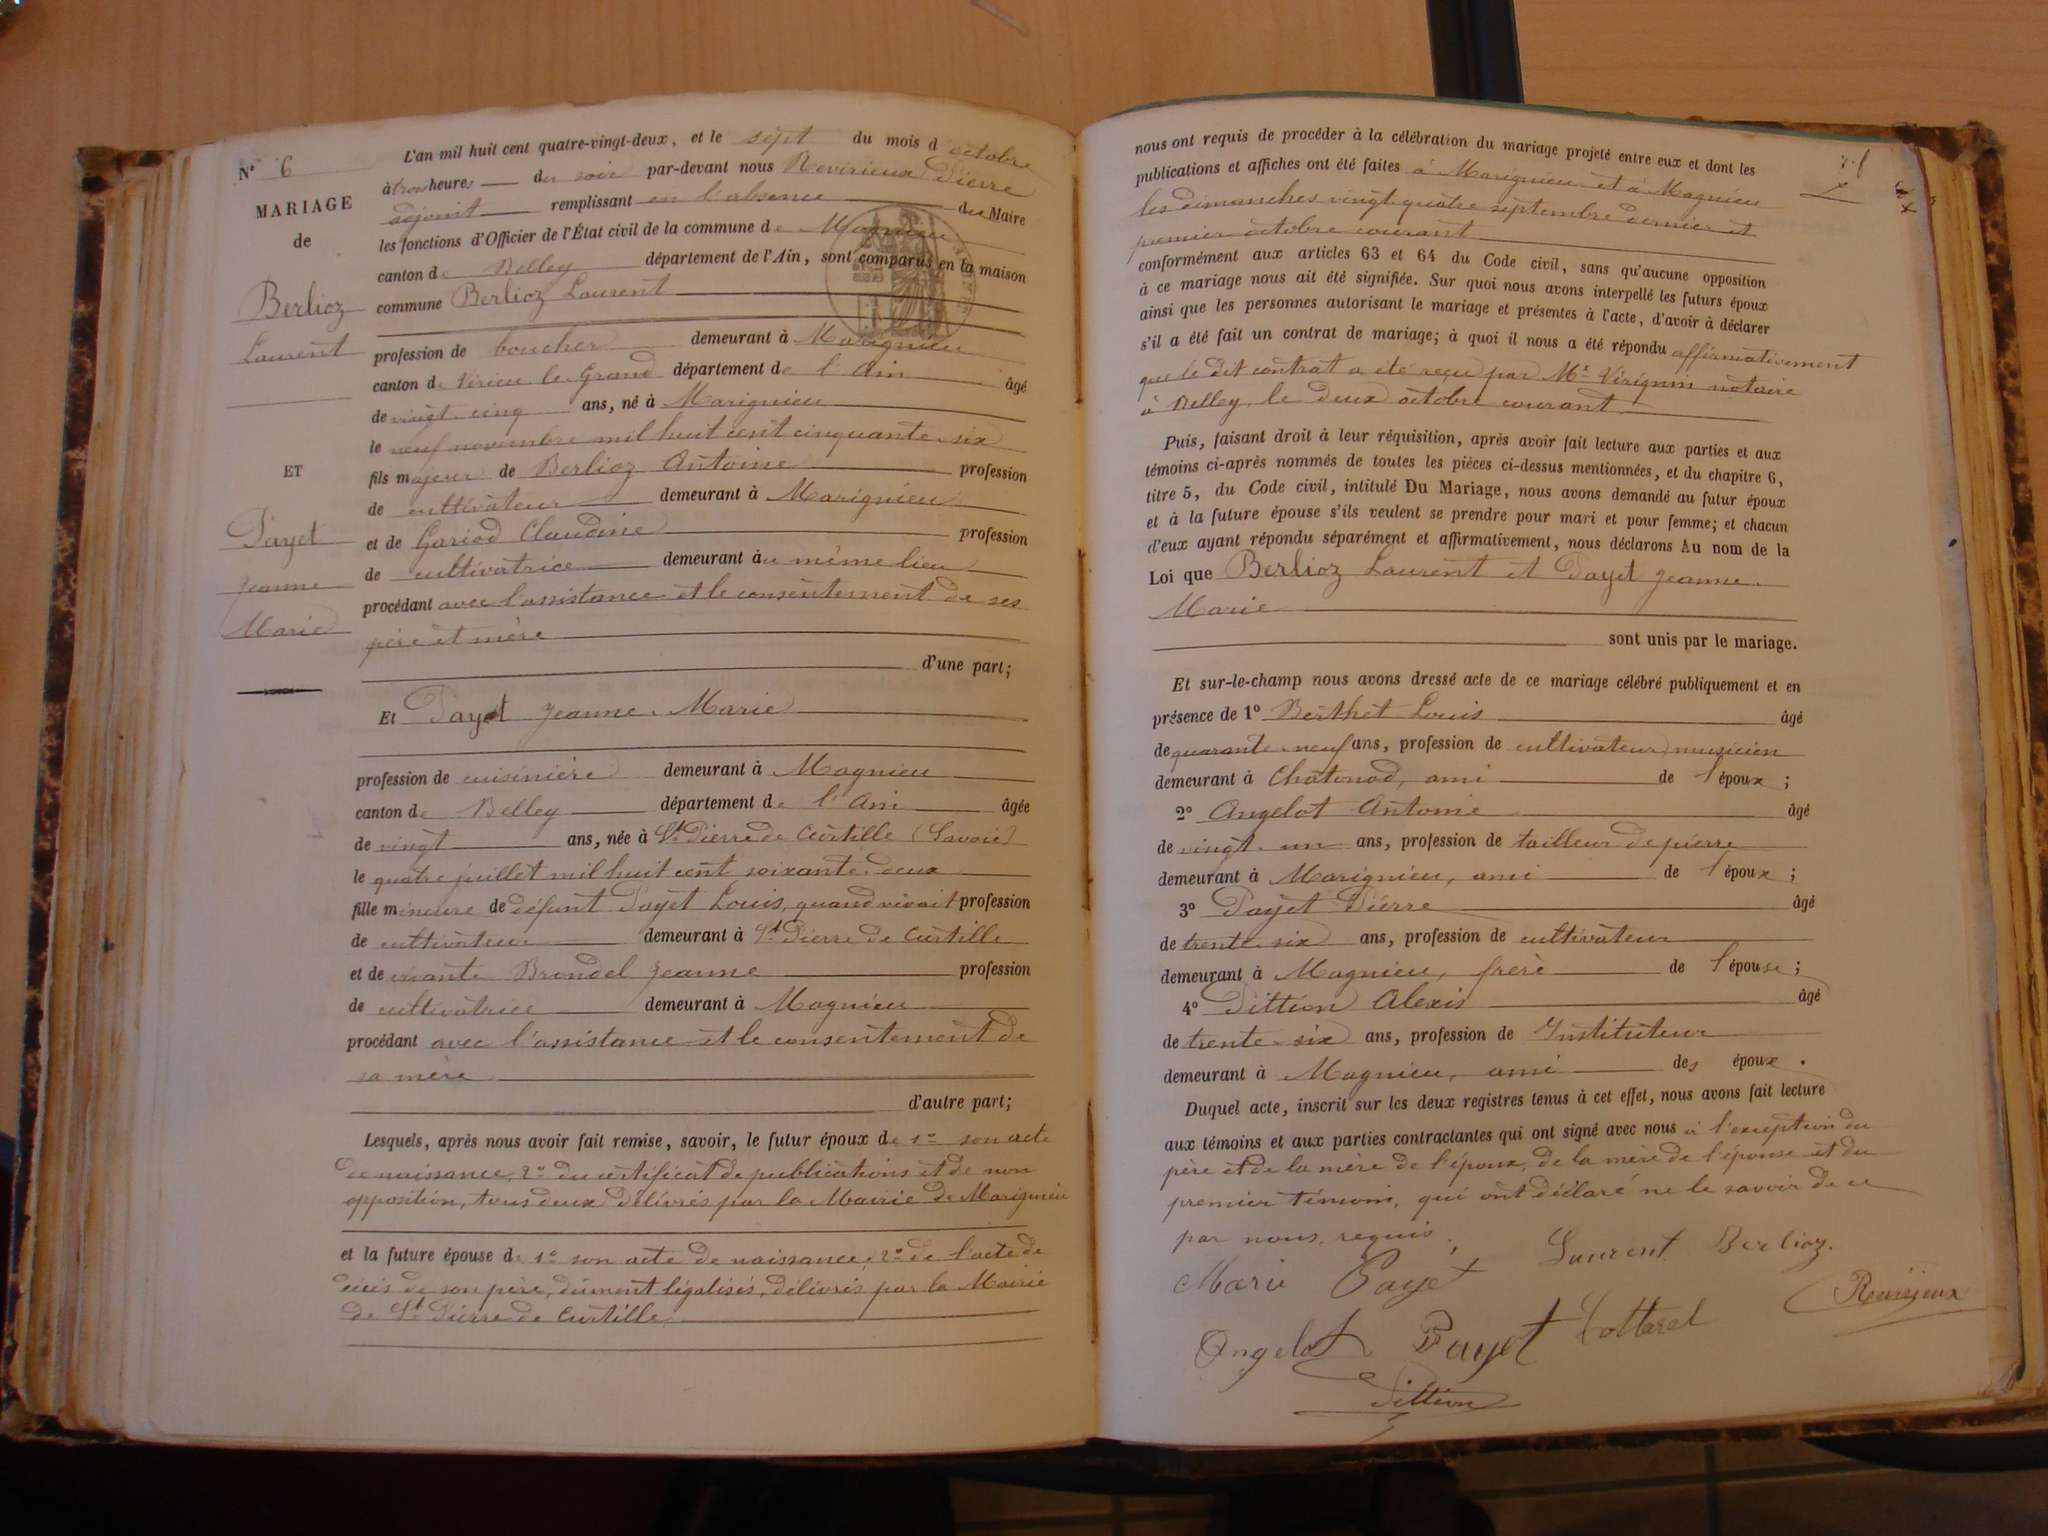 N° 6
MARIAGE
de
Berlioz
Laurent
ET
Payet
Jeanne
Marie
L'an mil huit cent quatre-vingt-deux, et le sept du mois d octobre
à trois heures du soir par-devant nous Revirieux Pierre
adjoint remplissant en l'absence du Maire
les fonctions d'Officier de l'État civil de la commune de Magnieu
canton de Belley département de l'Ain, sont comparus en la maison
commune Berlioz Laurent
profession de boucher demeurant à Marignieu
canton de Virieu le Grand département de l'Ain âgé
de vingt-cinq ans, né à Marignieu
le neuf novembre mil huit cent cinquante-six
fils majeur de Berlioz Antoine profession
de cultivateur demeurant à Marignieu
et de Gariod Claudine profession
de cultivatrice demeurant au même lieu
procédant avec l'assistance et le consentement de ses
père et mère
d'une part;
Et Payet Jeanne-Marie
profession de cuisinière demeurant à Magnieu
canton de Belley département de l'Ain âgée
de vingt ans, née à St Pierre de Curtille (Savoie)
le quatre juillet mil huit cent soixante-deux
fille mineure de défunt Payet Louis, quand vivait profession
de cultivateur demeurant à St Pierre de Curtille
et de vivante Brondel Jeanne profession
de cultivatrice demeurant à Magnieu
procédant avec l'assistance et le consentement de
sa mère
d'autre part;
Lesquels, après nous avoir fait remise, savoir, le futur époux de 1° son acte
de naissance, 2° du certificat de publications et de non
opposition, tous deux délivrés par la Mairie de Marignieu
et la future épouse de 1° son acte de naissance, 2° de l'acte de
décès de son père, dûment légalisés, délivrés par la Mairie
de St Pierre de Curtille
nous ont requis de procéder à la célébration du mariage projeté entre eux et dont les
publications et affiches ont été faites à Marignieu et à Magnieu
les dimanches vingt-quatre septembre dernier et
premier octobre courant
conformément aux articles 63 et 64 du Code civil, sans qu'aucune opposition
à ce mariage nous ait été signifiée. Sur quoi nous avons interpellé les futurs époux
ainsi que les personnes autorisant le mariage et présentes à l'acte, d'avoir à déclarer
s'il a été fait un contrat de mariage; à quoi il nous a été répondu affirmativement
que le dit contrat a été reçu par Me Virignin notaire
à Belley le deux octobre courant
Puis, faisant droit à leur réquisition, après avoir fait lecture aux parties et aux
témoins ci-après nommés de toutes les pièces ci-dessus mentionnées, et du chapitre 6,
titre 5, du Code civil, intitulé Du Mariage, nous avons demandé au futur époux
et à la future épouse s'ils veulent se prendre pour mari et pour femme; et chacun
d'eux ayant répondu séparément et affirmativement, nous déclarons Au nom de la
Loi que Berlioz Laurent et Payet Jeanne-
Marie
sont unis par le mariage.
Et sur-le-champ nous avons dressé acte de ce mariage célébré publiquement et en
présence de 1° Berthet Louis âgé
de quarante-neuf ans, profession de cultivateur musicien
demeurant à Chatonod, ami de l'époux;
2° Angelot Antoine âgé
de vingt-un ans, profession de tailleur de pierre
demeurant à Marignieu, ami de l'époux;
3° Payet Pierre âgé
de trente-six ans, profession de cultivateur
demeurant à Magnieu, frère de l'épouse;
4° Pittion Alexis âgé
de trente-six ans, profession de Instituteur
demeurant à Magnieu, ami des époux.
Duquel acte, inscrit sur les deux registres tenus à cet effet, nous avons fait lecture
aux témoins et aux parties contractantes qui ont signé avec nous à l'exception du
père et de la mère de l'époux, de la mère de l'épouse et du
premier témoin, qui ont déclaré ne le savoir de ce
par nous requis.
Marie Payet Laurent Berlioz.
Angelot Payet Cottarel
Pittion